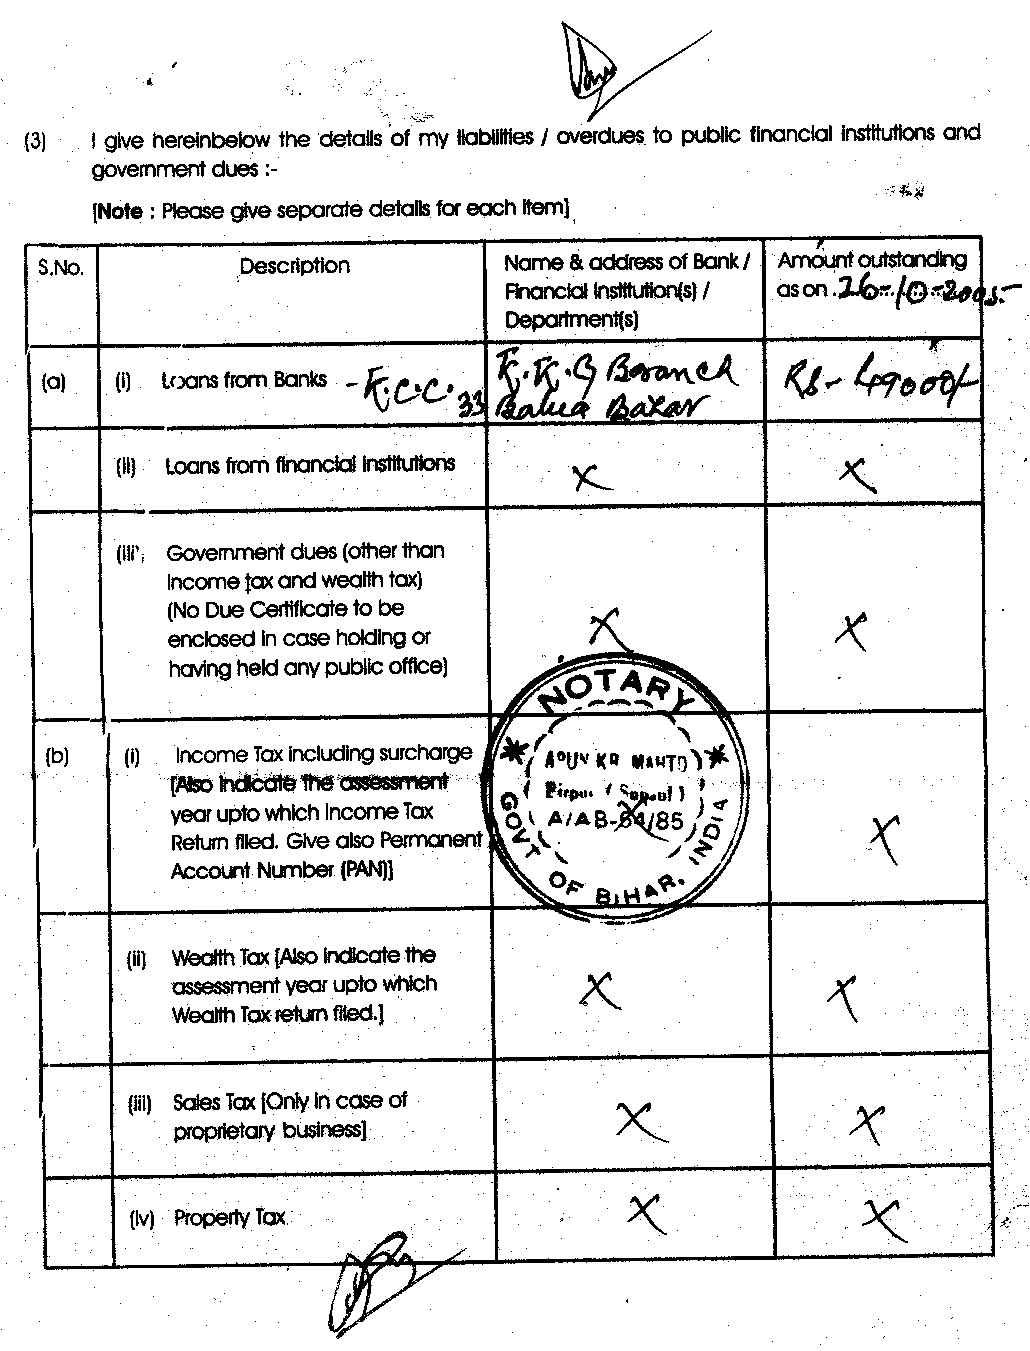 (3) I give hereinbelow the details of my liabilities / overdues to public financial institutions and
government dues :-
[Note : Please give separate details for each item]
S.No.
Description
Name & address of Bank /
Financial Institution(s) /
Department(s)
Amount outstanding
as on 26-10-2005.-
(a) (i) Loans from Banks - K.C.C. 33
K.K.G Branch
Balua Bazar
Rs- 49000/-
(ii) Loans from financial institutions
X X
(iii) Government dues (other than
income tax and wealth tax)
(No Due Certificate to be
enclosed in case holding or
having held any public office)
X X
(b) (i) Income Tax including surcharge
[Also indicate the assessment
year upto which Income Tax
Return filed. Give also Permanent
Account Number (PAN)]
X X
NOTARY
KR MAHTO
A/AB-64/85
GOVT OF BIHAR, INDIA
(ii) Wealth Tax [Also indicate the
assessment year upto which
Wealth Tax return filed.]
X X
(iii) Sales Tax [Only in case of
proprietary business]
X X
(iv) Property Tax
X X